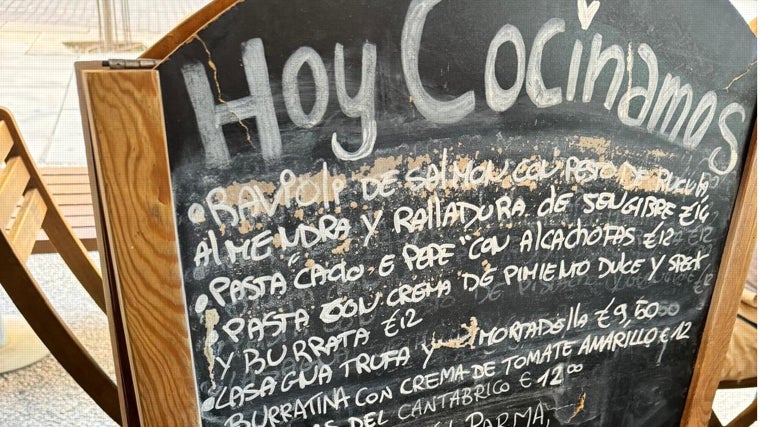 Hoy Cocinamos
• RAVIOLI DE SALMON CON PESTO DE RUCULA
ALMENDRA Y RALLADURA DE SENGIBRE €14
• PASTA "CACIO E PEPE" CON ALCACHOFAS €12
• PASTA CON CREMA DE PIMIENTO DULCE Y SPECK
Y BURRATA €12
• LASAGNA TRUFA Y MORTADELLA €9,50
• BURRATINA CON CREMA DE TOMATE AMARILLO €12
DEL CANTABRICO €12⁰⁰
PARMA,